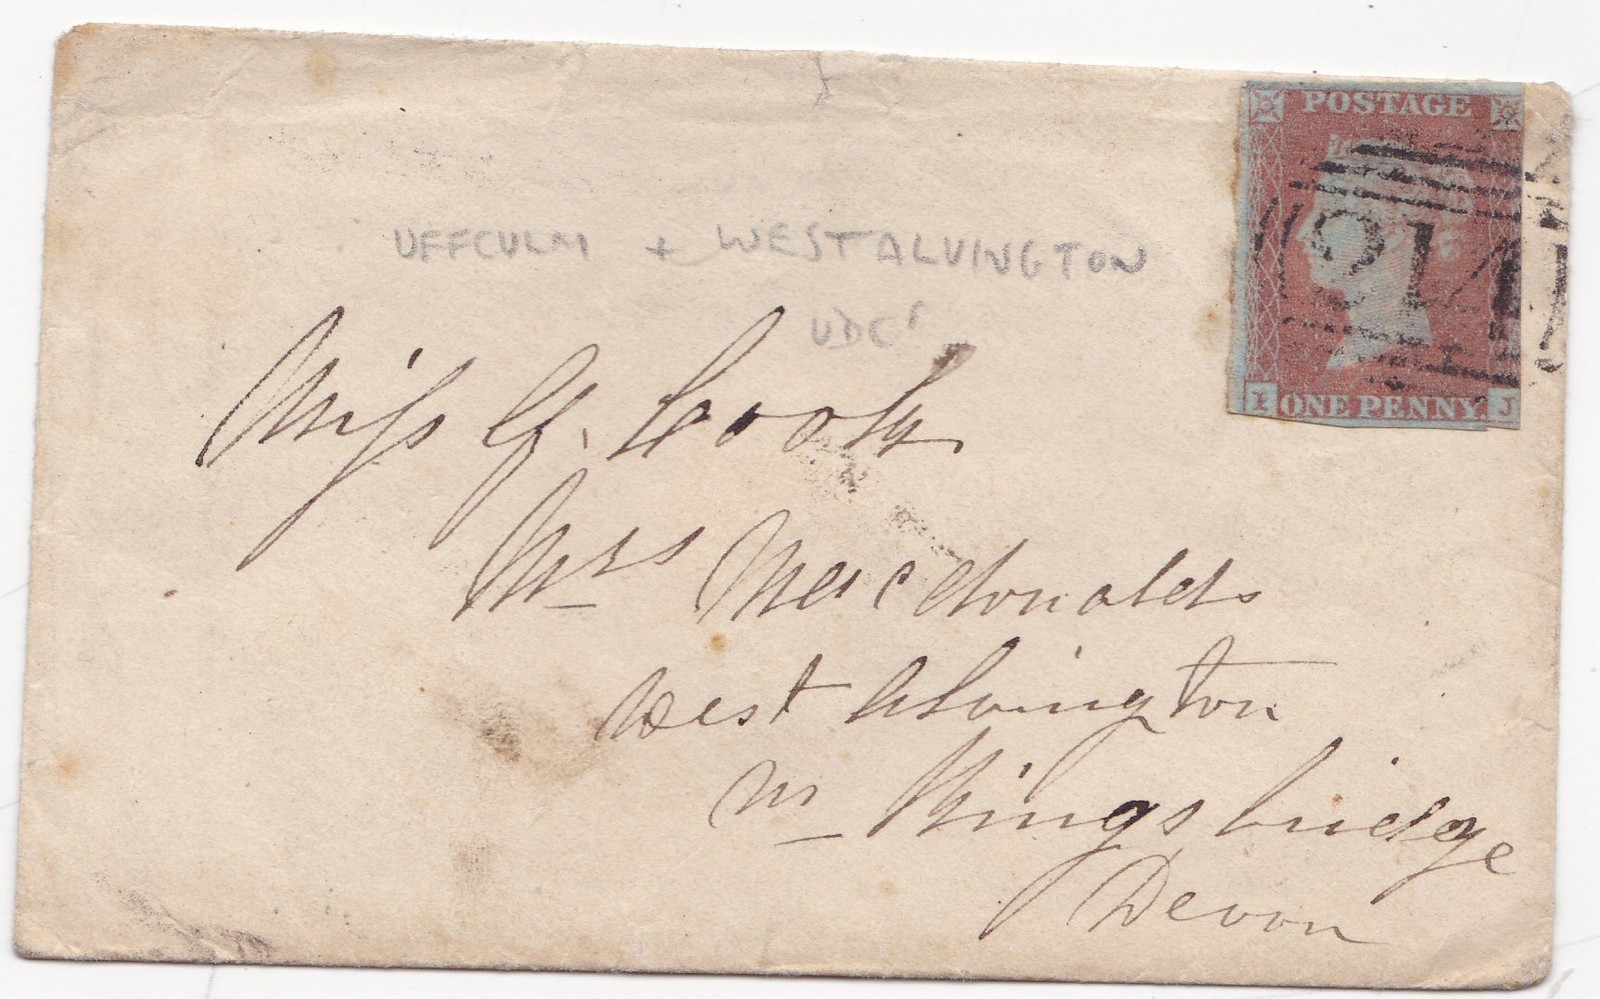 POSTAGE
214
I ONE PENNY. J
UFFCULM + WEST ALVINGTON
UDCs
Miss G. Cook
Mrs Macdonalds
West Alvington
nr Kingsbridge
Devon